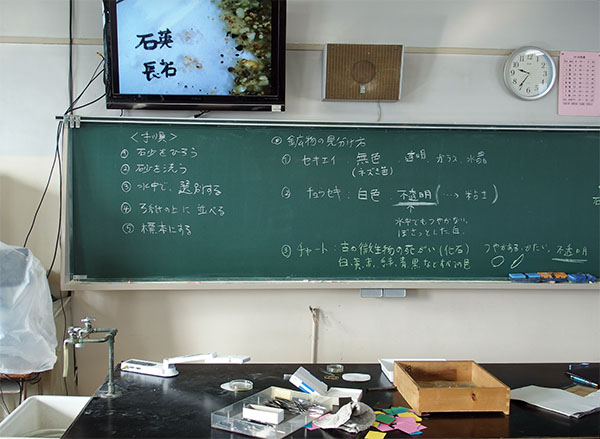 石英
長石
<手順>
① 石砂をひろう
② 砂を洗う
③ 水中で、選別する
④ ろ紙の上に並べる
⑤ 標本にする
◎ 鉱物の見分け方
① セキエイ : 無色 透明 ガラス、水晶
(ネズミ色)
② チョウセキ : 白色 不透明 (…→ 粘土)
水中でもつやがない。
ぼさっとした白。
③ チャート : 古の微生物の死がい (化石) つやがある、かたい、不透明
白、黄、赤、緑、青、黒など